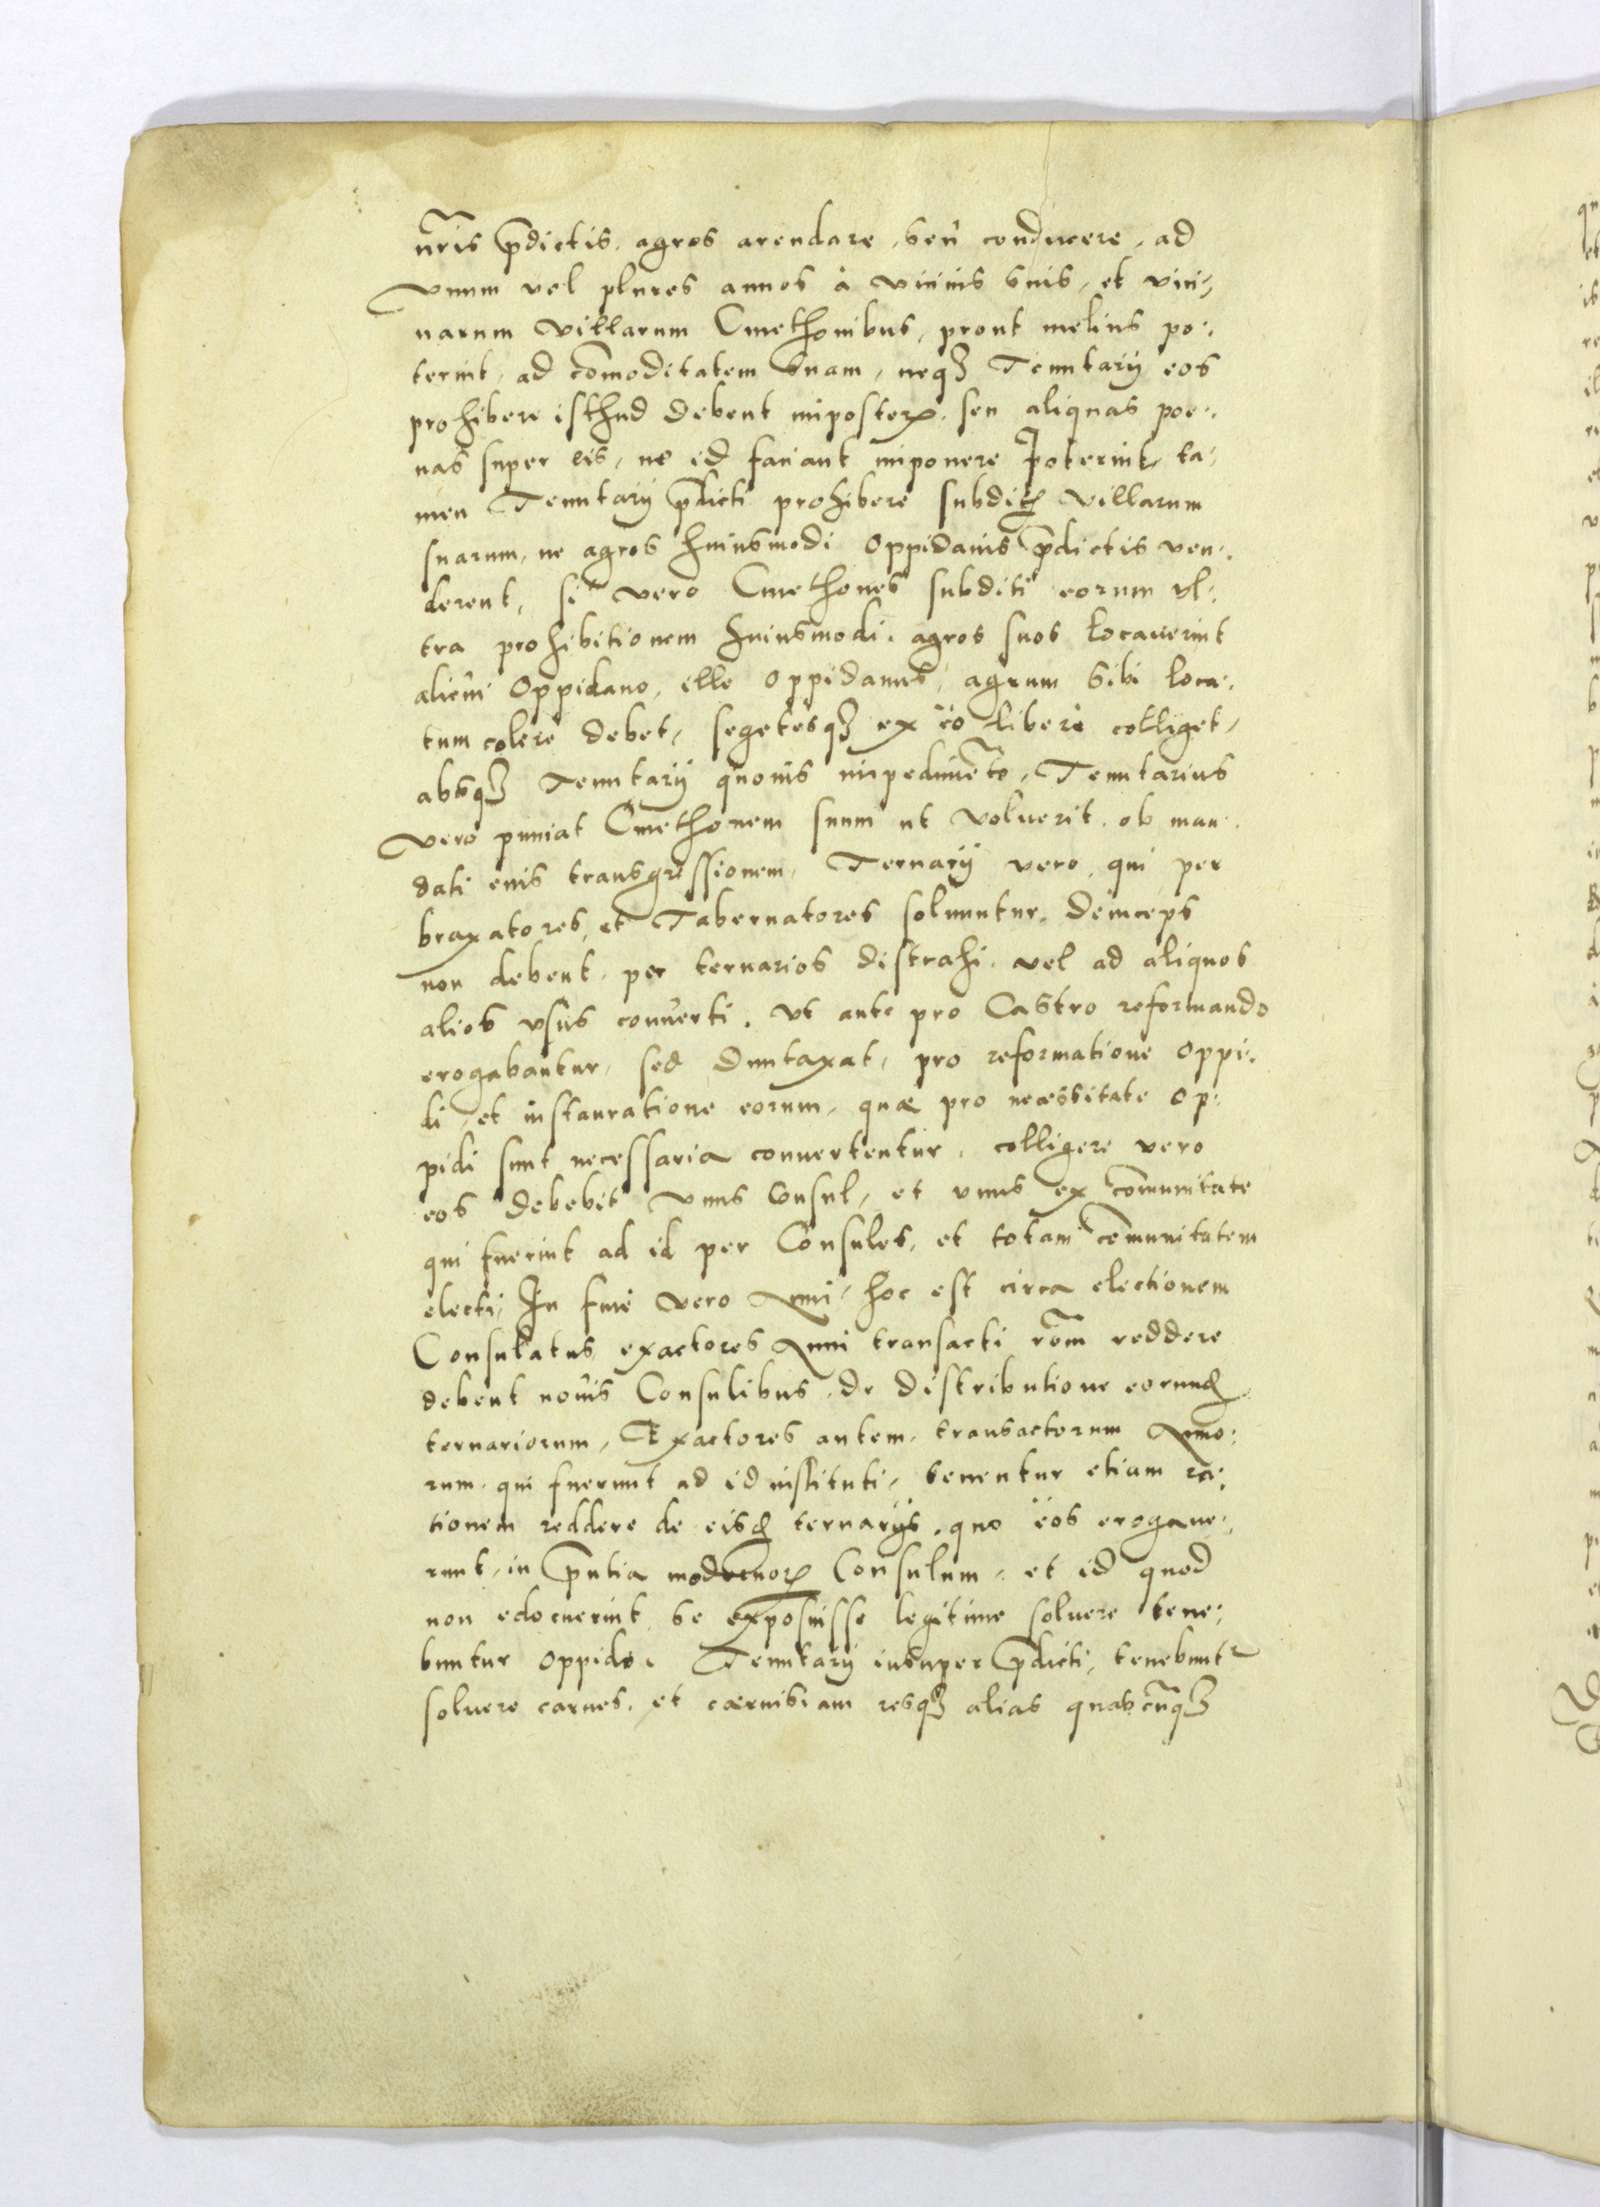 nr̃is p̃dictis, agros arendare, seu conducere, ad
vnum vel plures annos à vicinis suis, et vici,
narum villarum Cmethonibus, prout melius po,
terint, ad com̃oditatem suam, neqꝫ Tenutarÿ eos
prohibere isthud debent imposterꝝ, seu aliquas poe,
nas super eis, ne id faciant imponere poterint, ta,
men Tenutarÿ p̃dicti prohibere subditꝭ villarum
suarum, ne agros huiusmodi oppidanis p̃dictis ven,
derent, si vero Cmethones subditi eorum vl,
tra prohibitionem huiusmodi, agros suos locauerint
alicui oppidano, ille oppidanus, agrum sibi loca,
tum colere debet, segetesqꝫ ex eo libere colliget,
absqꝫ Tenutarÿ quouis impedimẽto, Tenutarius
vero puniat Cmethonem suum ut voluerit, ob man,
dati eius transgressionem, Ternarÿ vero, qui per
braxatores, et Tabernatores soluuntur, deinceps
non debent, per ternarios distrahi, vel ad aliquos
alios vsus conuerti, vt ante pro Castro reformando
erogabantur, sed duntaxat, pro reformatione oppi,
di, et instauratione eorum, quæ pro necessitate op,
pidi sunt necessaria conuertentur, colligere vero
eos debebit vnus Consul, et vnus ex com̃unitate
qui fuerint ad id per Consules, et totam com̃unitatem
electi, In fine vero Anni, hoc est circa electionem
Consulatus, exactores Anni transacti rõem reddere
debent nouis Consulibus, de distributione eorundꝭ
ternariorum, Exactores autem, transactorum Anno,
rum, qui fuerunt ad id instituti, tenentur etiam ra,
tionem reddere de eisdꝭ ternarÿs, quo eos erogaue,
runt, in p̃ntia modernorꝝ Consulum, et id quod
non edocuerint, se exposuisse legitime soluere tene,
buntur oppido, Tenutarÿ insuper p̃dicti, tenebuntr
soluere carnes, et cæruisiam resqꝫ alias quascũqꝫ